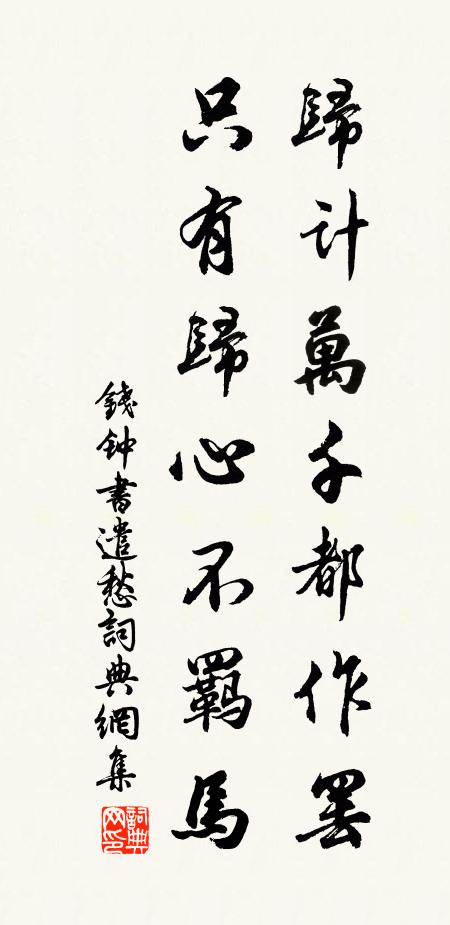 歸計萬千都作罷
只有歸心不羈馬
錢钟書遣愁詞典網集
詞典
网印